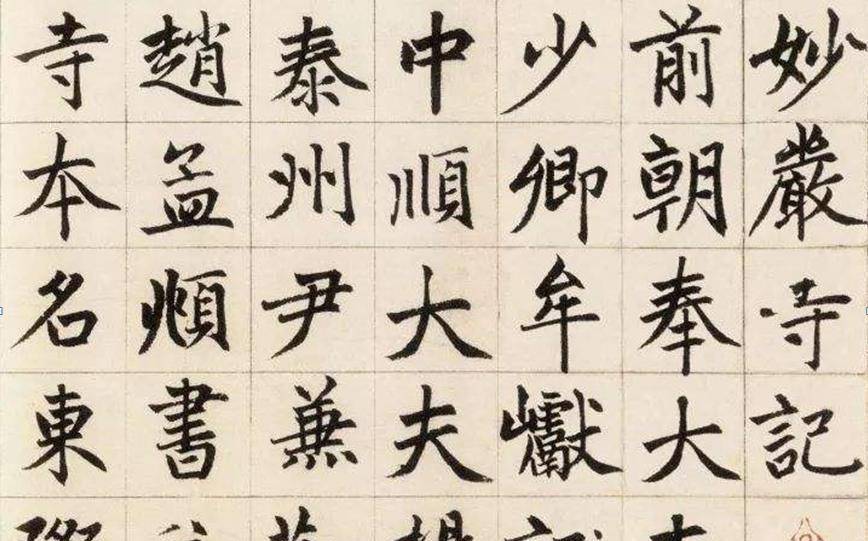 妙嚴寺記
前朝奉大
少卿牟巘
中順大夫
泰州尹兼
趙孟頫書
寺本名東